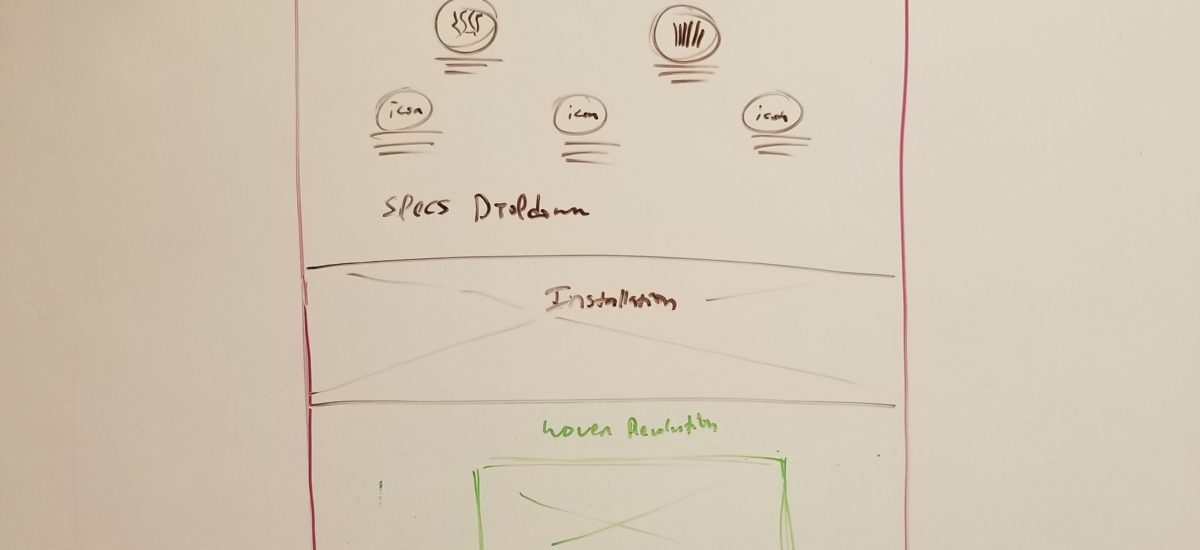 icon icon icon
Specs Dropdown
Installation
Woven Revolution